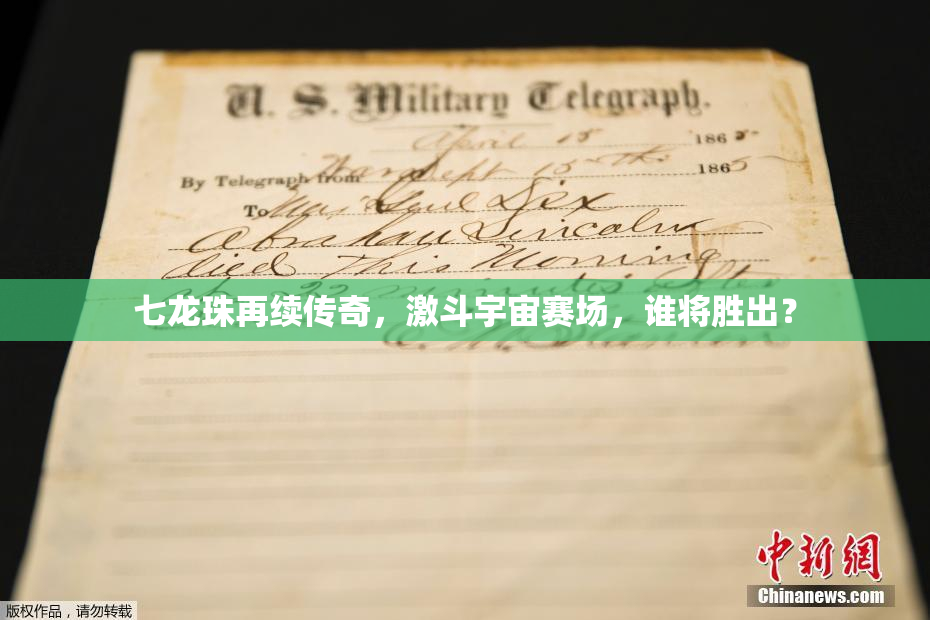 U. S. Military Telegraph.
April 15 1865
By Telegraph from War Dept 15th 1865
To Maj Genl Dix
Abraham Lincoln
died This Morning
at 22 minutes after
七龙珠再续传奇，激斗宇宙赛场，谁将胜出？
E. M. Stanton
中新网
Chinanews.com
版权作品，请勿转载